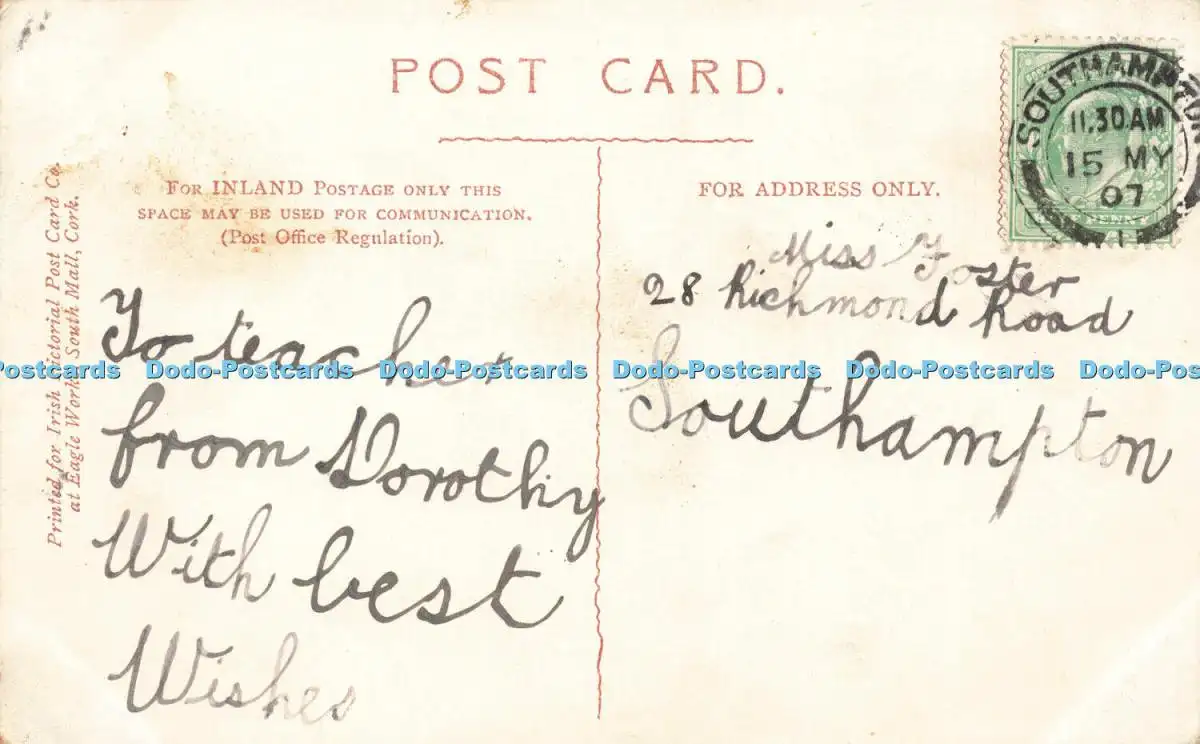 POST CARD.
FOR INLAND POSTAGE ONLY THIS
SPACE MAY BE USED FOR COMMUNICATION.
(Post Office Regulation).
FOR ADDRESS ONLY.
SOUTHAMPTON
11.30 AM
15 MY
07
PENNY
Printed for Irish Pictorial Post Card Co.
at Eagle Works, South Mall, Cork.
To teacher
from Dorothy
With best
Wishes
Miss Foster
28 Richmond Road
Southampton
Dodo-Postcards Dodo-Postcards Dodo-Postcards Dodo-Postcards Dodo-Postcards Dodo-Postcards